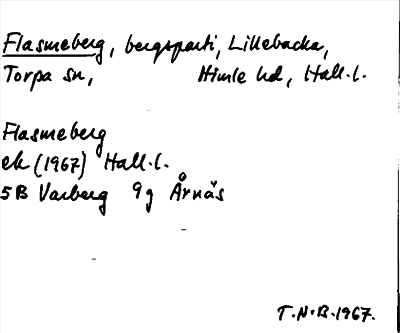 Flasmeberg, bergsparti, Lillebacka,
Torpa sn, Himle hd, Hall.l.
Flasmeberg
ek (1967) Hall.l.
5B Varberg 9g Årnäs
T.N.B.1967.